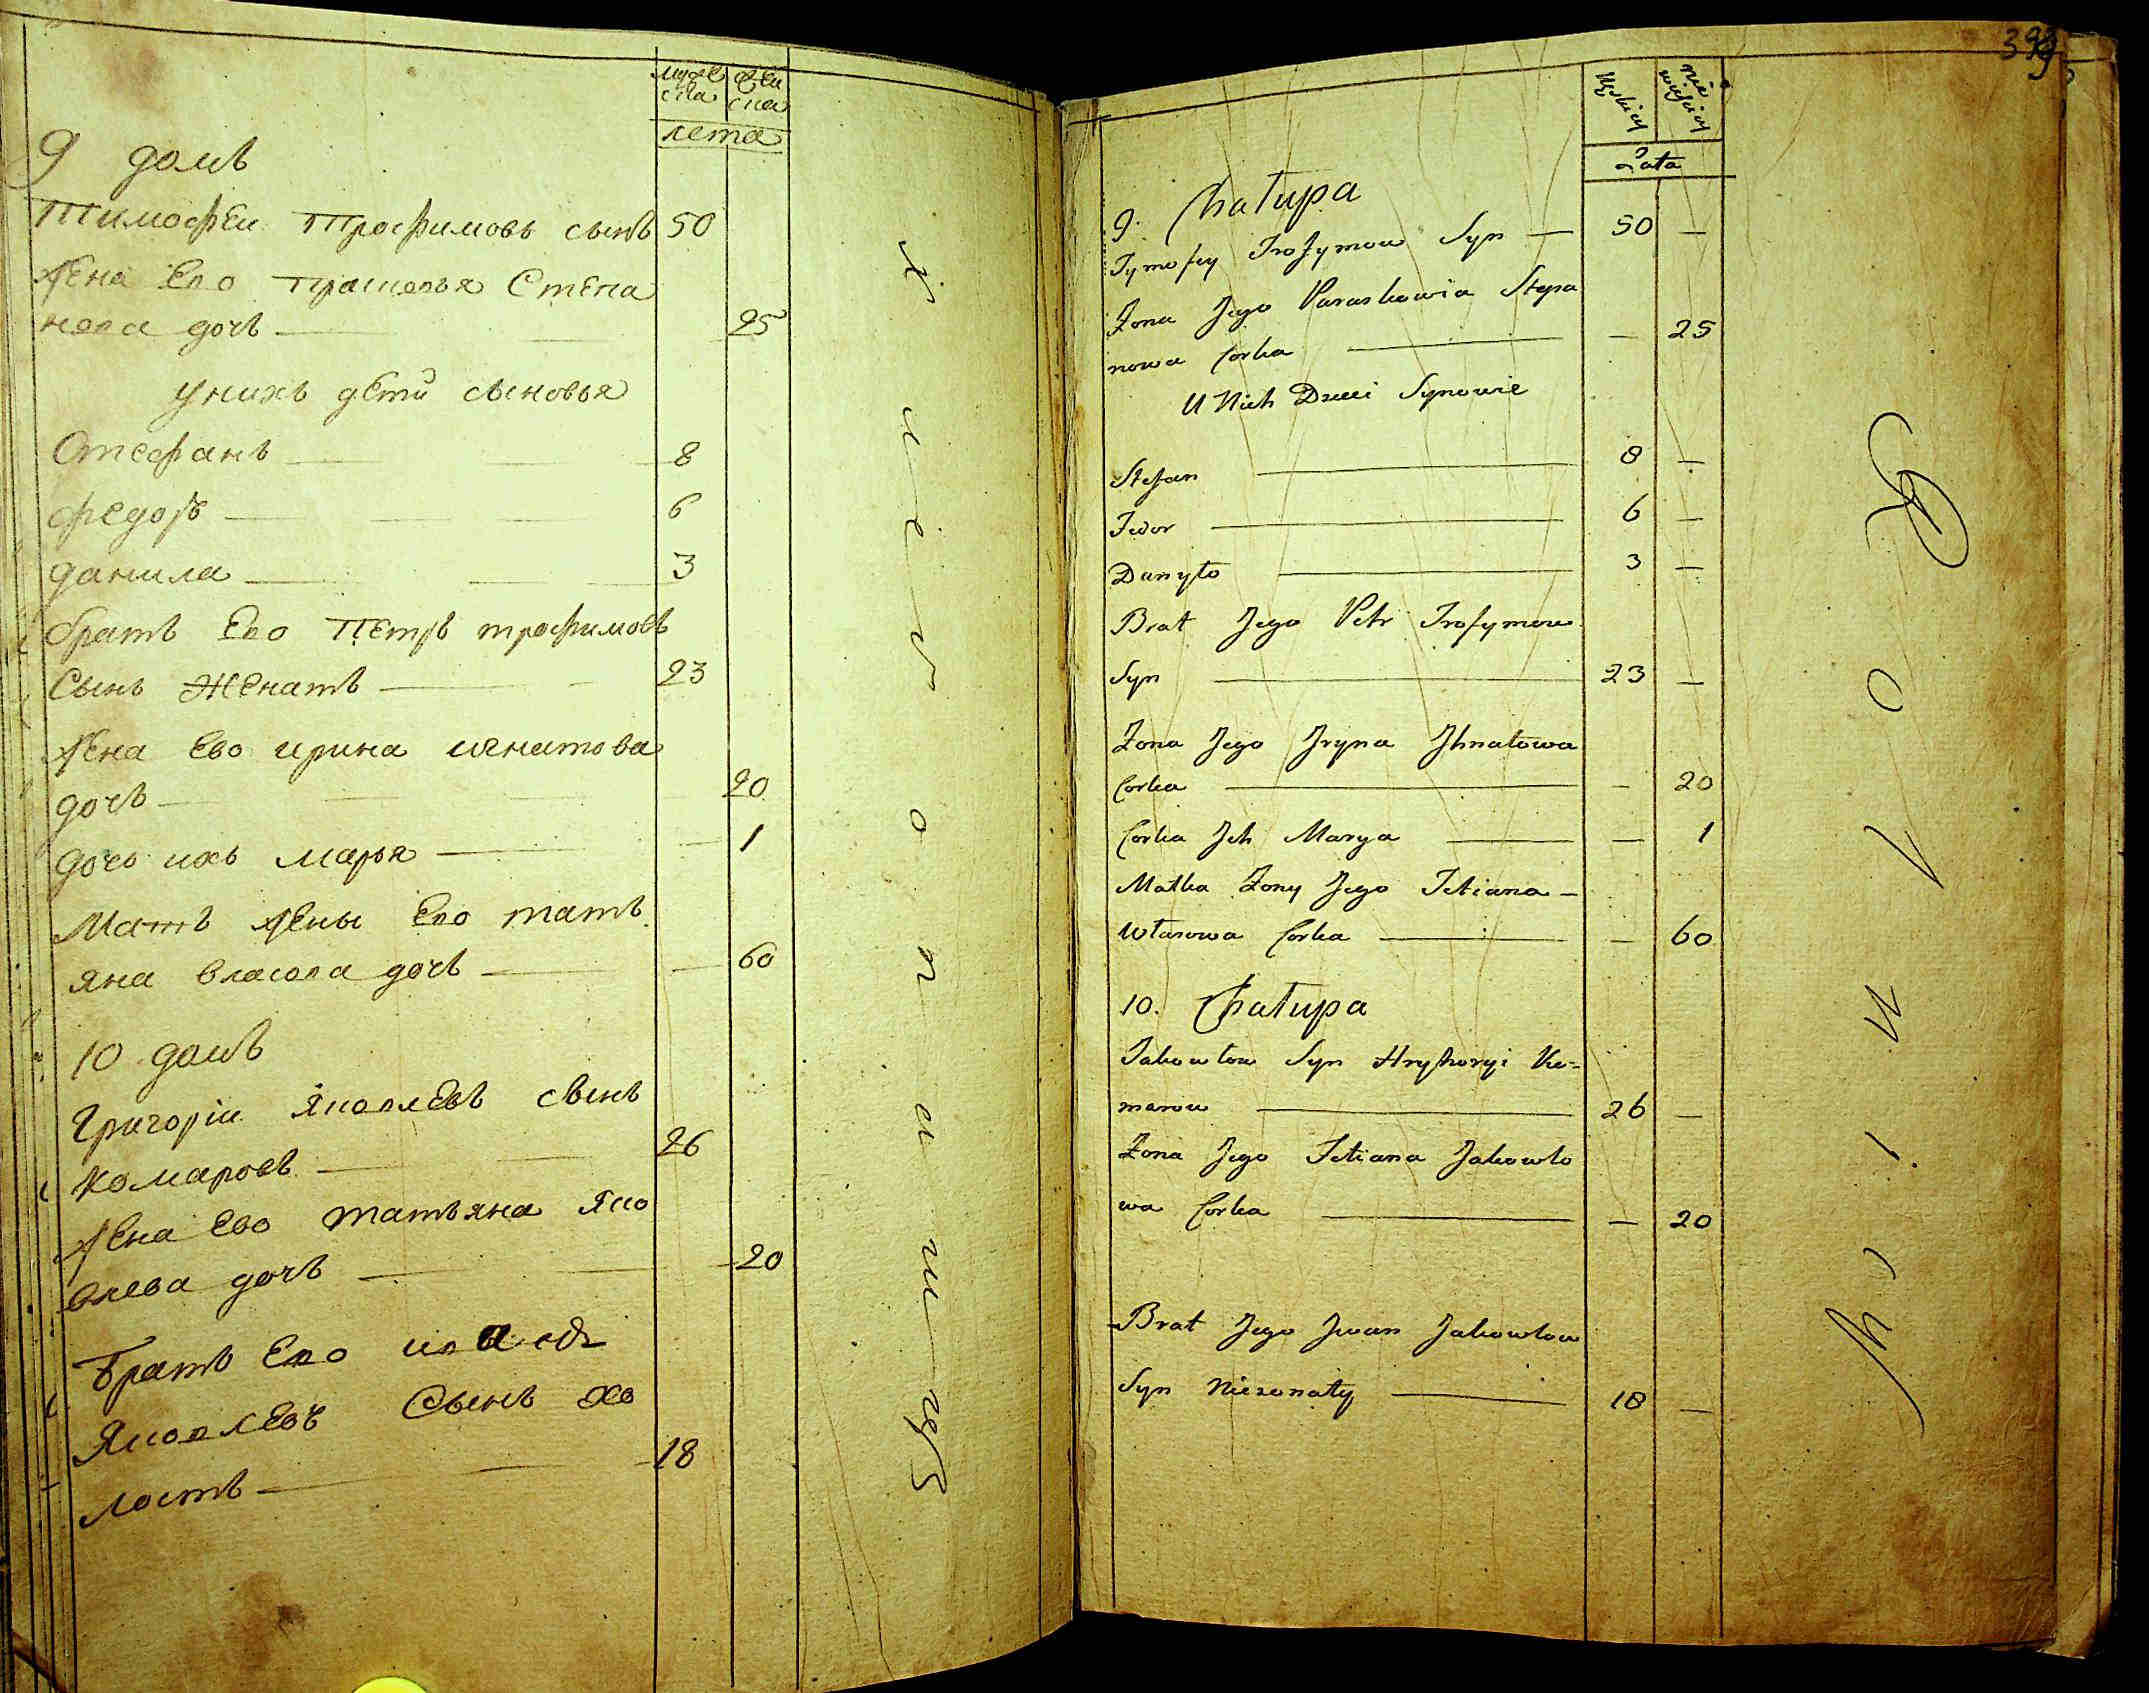 муже
ска
жен
ска
лета
9 домъ
Тимофеи Трофимовъ сынъ 50
Жена Ево Прасковья Степа
нова дочь 25
у нихъ дети сыновья
Стефанъ 8
Федоръ 6
данила 3
братъ Ево Петръ трофимовъ
Сынъ женатъ 23
Жена Ево ирина игнатова
дочь 20
дочь ихъ марья 1
Мать жены Ево тать
яна власова дочь 60
10 домъ
Григоріи Яковлевъ сынъ
комаровъ 26
Жена Ево татьяна Яко
влева дочь 20
Братъ Ево
Яковлевъ Сынъ хо
лостъ 18
Męskiej
Niewieściej
Lata
9. Chałupa
Tymofey Trofymow Syn — 50 —
Zona Jego Paraskowia Stepa
nowa Corka — 25
U Nich Dzieci Synowie
Stefan 8 —
Fedor 6 —
Danyło 3 —
Brat Jego Petr Trofymow
Syn 23 —
Zona Jego Jryna Jhnatowa
Corka — 20
Corka Jch Marya — 1
Matka Zony Jego Tetiana —
Własowa Corka — 60
10. Chałupa
Jakowlow Syn Hryhoryi Ko-
marow 26 —
Zona Jego Tetiana Jakowlo
wa Corka — 20
Brat Jego Jwan Jakowlow
Syn Niezonaty 18 —